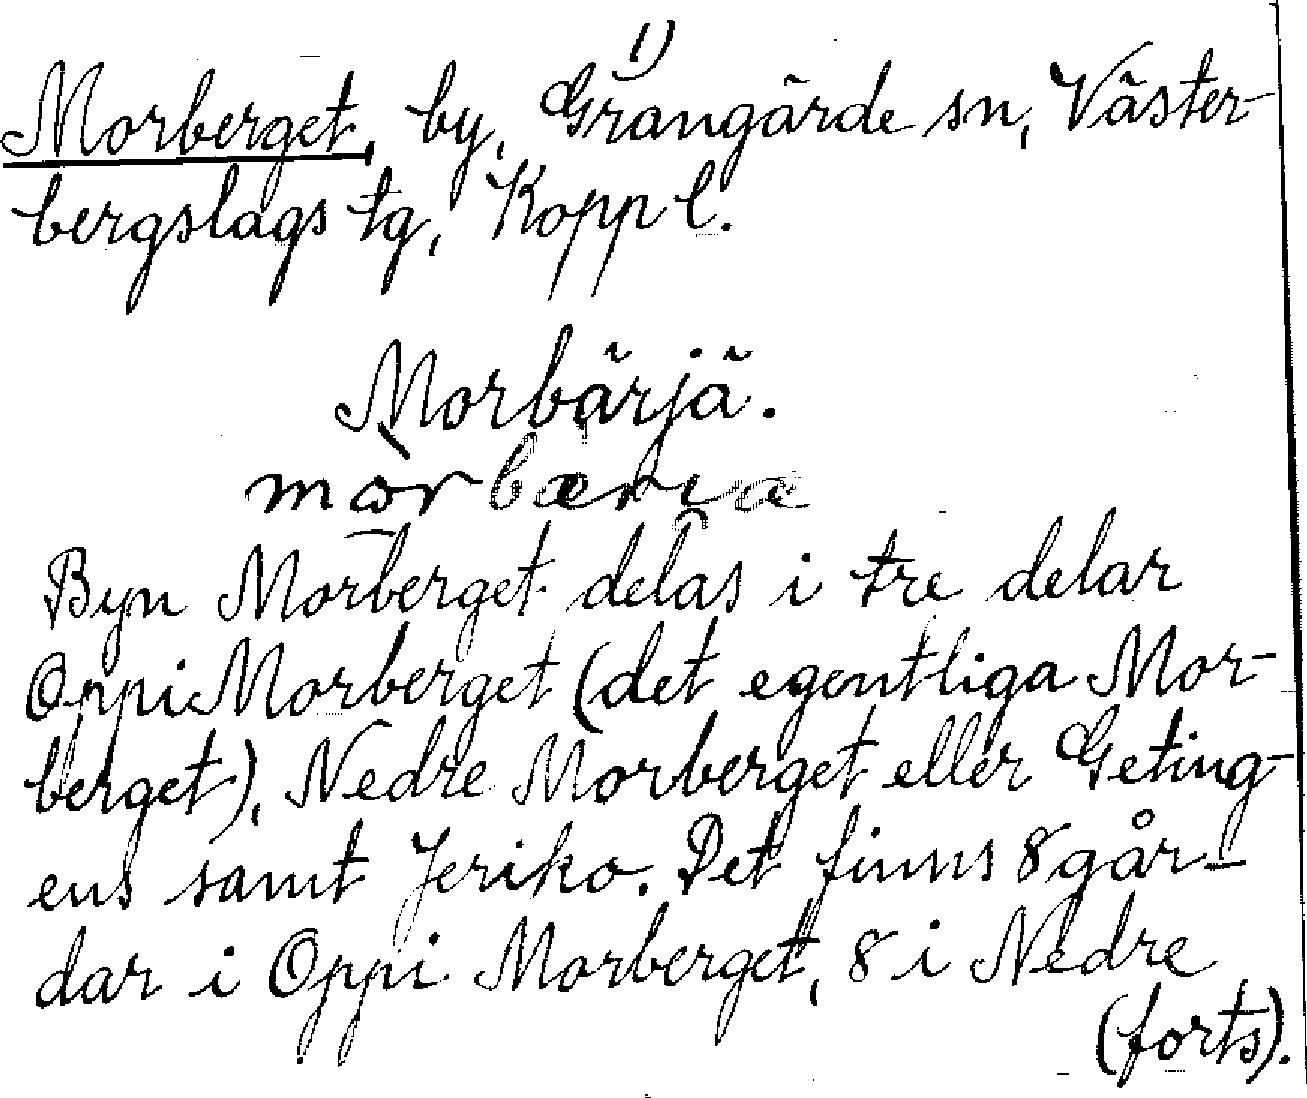 1)
Morberget, by, Grangärde sn, Väster-
bergslags tg, Kopp l.
Morbärjä.
Byn Morberget delas i tre delar
Oppi Morberget (det egentliga Mor-
berget), Nedre Morberget eller Geting-
ens samt Jeriko. Det finns 8 går-
dar i Oppi Morberget, 8 i Nedre
(forts).